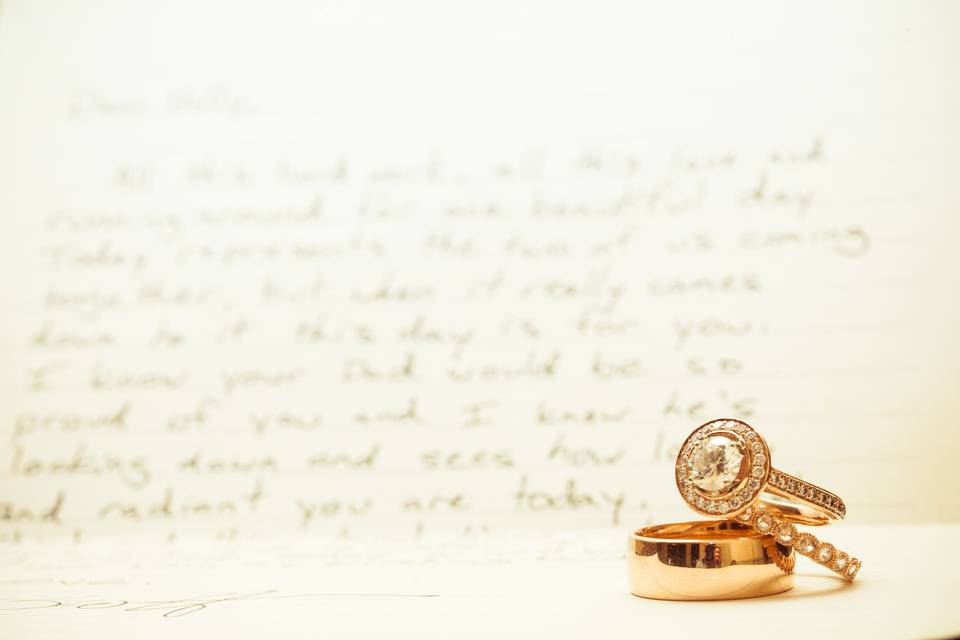 Dear Holly,
All this hard work, all this love and
running around for one beautiful day.
Today represents the two of us coming
together, but when it really comes
down to it this day is for you.
I know your Dad would be so
proud of you and I know he's
looking down and sees how
and radiant you are today.